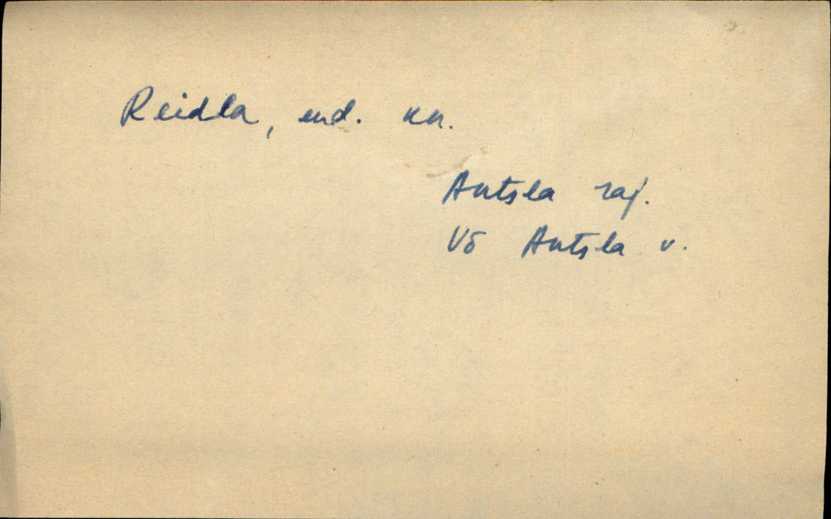 Reidla, end. kn.
Antsla raj.
Võ Antsla v.